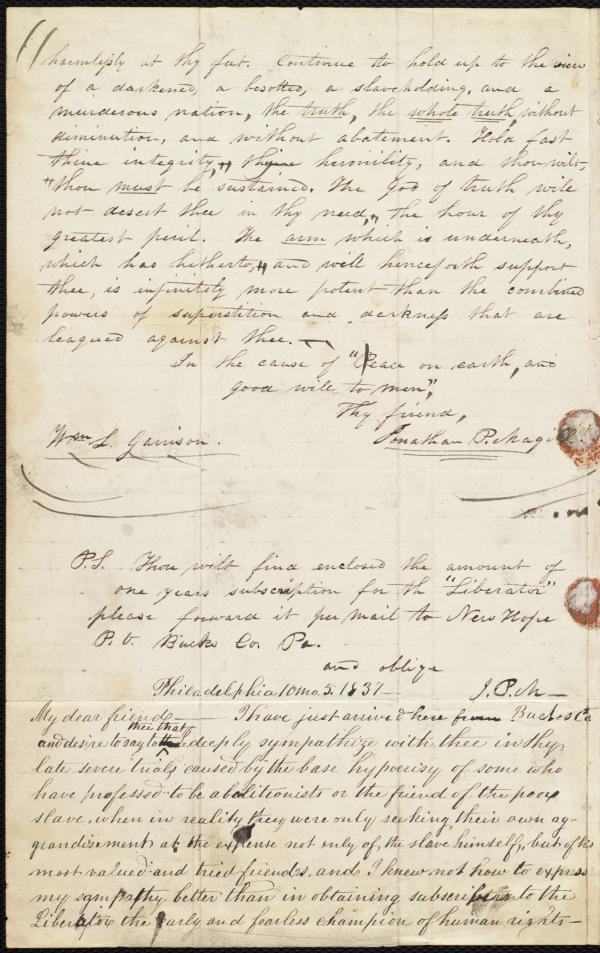 harmlessly at thy feet. Continue to hold up to the view
of a darkened, a besotted, a slaveholding, and a
murderous nation, the truth, the whole truth, without
diminution, and without abatement. Hold fast
thine integrity, thine humility, and thou wilt,
"thou must be sustained. The God of truth will
not desert thee in thy need, the hour of thy
greatest peril. The arm which is underneath,
which has hitherto, and will henceforth support
thee, is infinitely more potent than the combined
powers of superstition and darkness that are
leagued against thee. —
In the cause of "Peace on earth, and
good will to men",
Thy friend,
Wm L. Garrison. Jonathan P. Magill
P.S. Thou wilt find enclosed the amount of
one years subscription for th "Liberator"
please forward it per mail to New Hope
P.O. Bucks Co. Pa.
and oblige
Philadelphia 10mo. 5. 1837 — J.P.M —
My dear friend — I have just arrived here from Buckes Co
thee that
and desire to say to I deeply sympathize with thee in thy
late severe trials caused by the base hypocrisy of some who
have professed to be abolitionists or the friend of the poor
slave, when in reality they were only seeking their own ag-
grandizement at the expense not only of the slave himself, but of his
most valued and tried friends, and I knew not how to express
my sympathy better than in obtaining subscribers to the
Liberator the early and fearless champion of human rights —